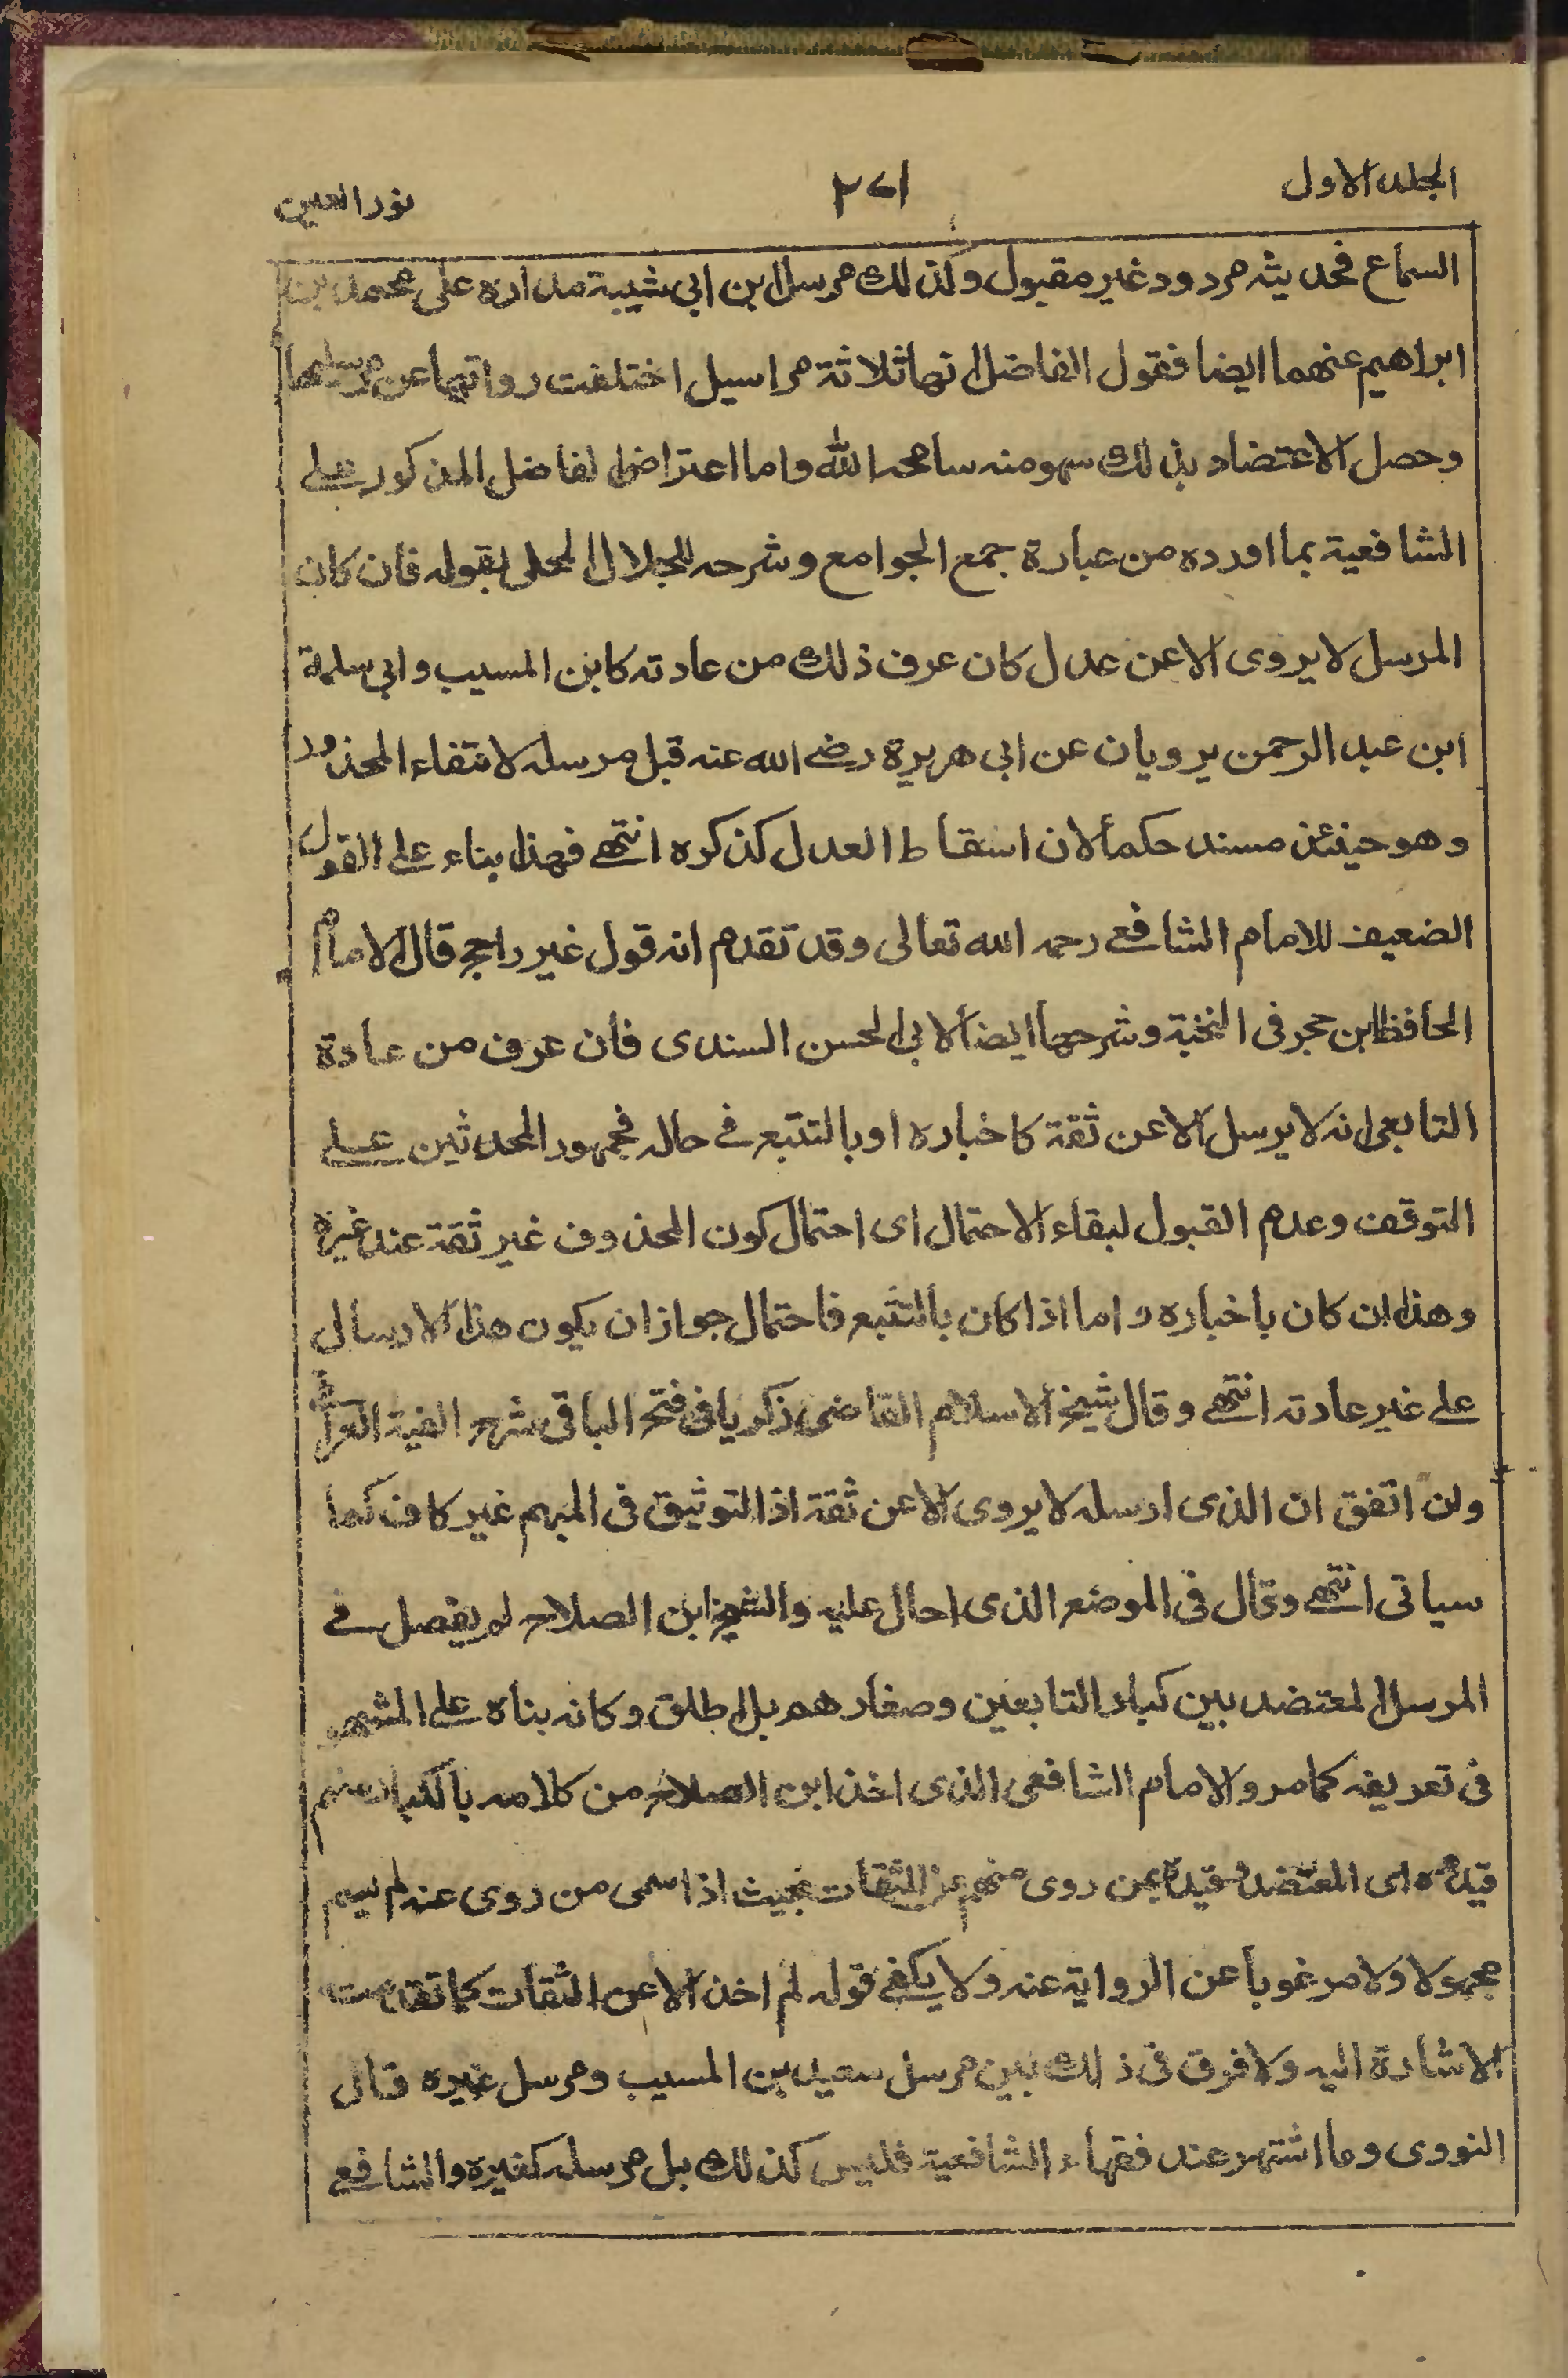 الجلد الاول
٢٧١
نور العين
السماع فحديثه مردود غير مقبول وكذلك مرسل ابن ابى شيبة مداره على محمد بن
ابراهيم عنهما ايضا فقول الفاضل انها ثلاثة مراسيل اختلفت رواتها عن مرسلها
وحصل الاعتضاد بذلك سهو منه سامحه الله واما اعتراض الفاضل المذكور على
الشافعية بما اورده من عبارة جمع الجوامع وشرحه للجلال المحلى بقوله فان كان
المرسل لا يروى الا عن عدل كان عرف ذلك من عادته كابن المسيب وابى سلمة
ابن عبد الرحمن يرويان عن ابى هريرة رضى الله عنه قبل مرسله لانتفاء المحذور
وهو حينئذ مسند حكماً لان اسقاط العدل كذكره انتهى فهذا بناء على القول
الضعيف للامام الشافعى رحمه الله تعالى وقد تقدم انه قول غير راجح قال الامام
الحافظ ابن حجر فى النخبة وشرحها ايضاً لابى الحسن السندى فان عرف من عادة
التابعى انه لا يرسل الا عن ثقة كاخباره او بالتتبع فى حاله فجمهور المحدثين على
التوقف وعدم القبول لبقاء الاحتمال اى احتمال كون المحذوف غير ثقة عند غيره
وهذا ان كان باخباره واما اذا كان بالتتبع فاحتمال جواز ان يكون هذا الارسال
على غير عادته انتهى وقال شيخ الاسلام القاضى زكريا فى فتح الباقى شرح الفية العراقى
وان اتفق ان الذى ارسله لا يروى الا عن ثقة اذ التوثيق فى المبهم غير كاف كما
سياتى انتهى وقال فى الموضع الذى احال عليه والشيخ ابن الصلاح لم يفصل فى
المرسل المعتضد بين كبار التابعين وصغارهم بل اطلق وكانه بناه على المشهور
فى تعريفه كما مر والامام الشافعى الذى اخذ ابن الصلاح من كلامه بالكبار منهم
قيده اى المعتضد وقيده بمن روى منهم عن الثقات بحيث اذا سمى من روى عنه لم يسم
مجهولا ولا مرغوباً عن الرواية عنه ولا يكفى قوله لم اخذ الا عن الثقات كما تقدمت
الاشارة اليه ولا فرق فى ذلك بين مرسل سعيد بن المسيب ومرسل غيره قال
النووى وما اشتهر عند فقهاء الشافعية فليس كذلك بل مرسله كغيره والشافعى